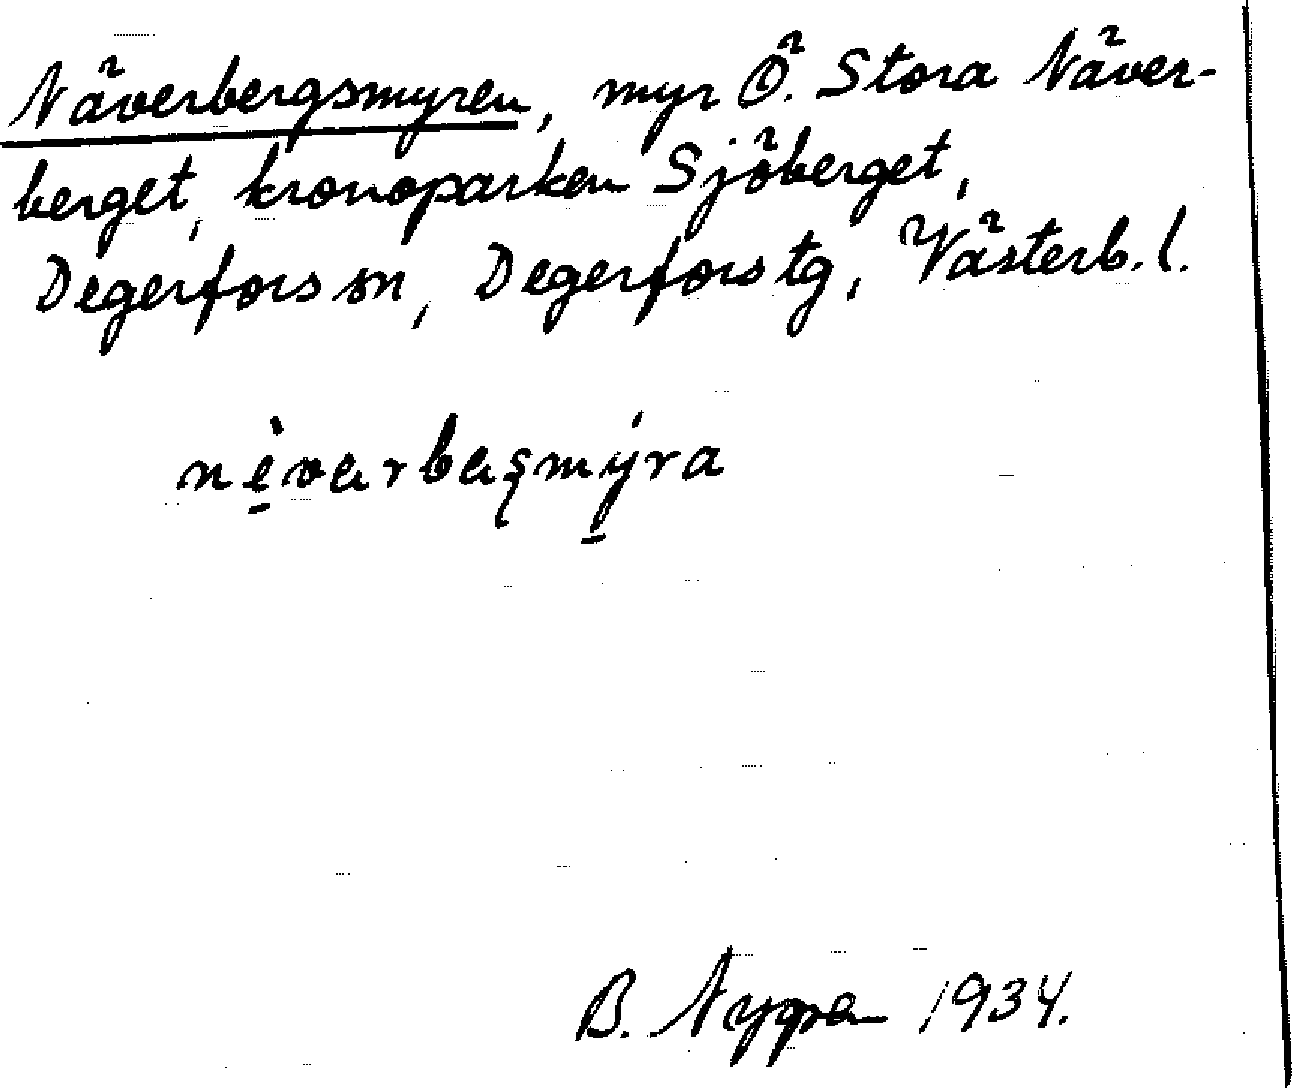 Näverbergsmyren, myr Ö. Stora Näver-
berget, kronoparken Sjöberget,
Degerfors sn, Degerfors tg, Västerb. l.
nèvarbaʂmýra
B. Nygren 1934.